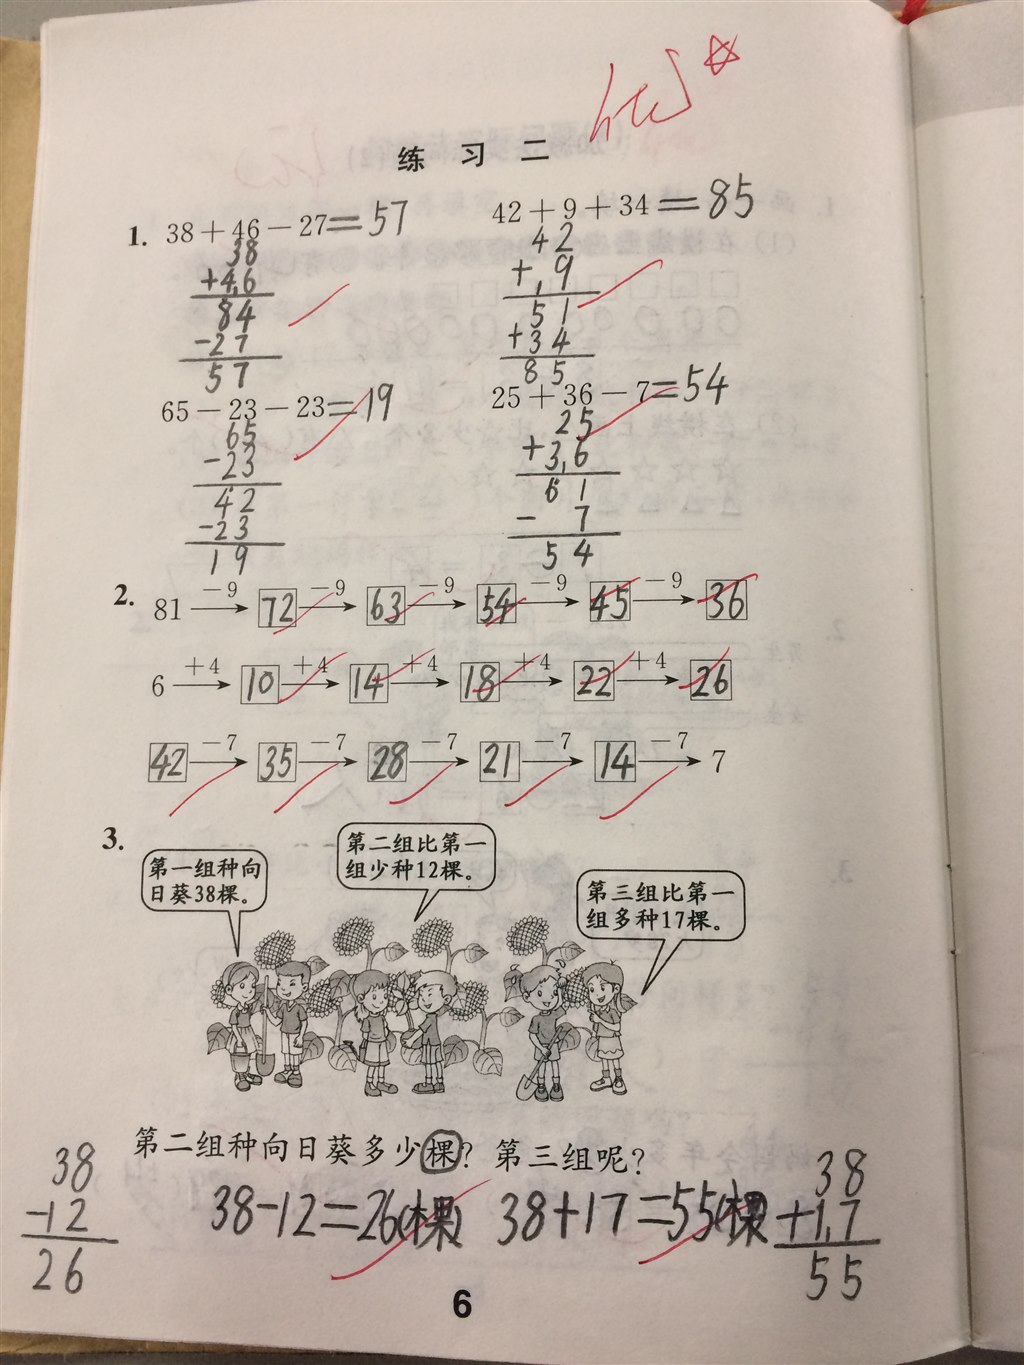 练 习 二
1. 38+46-27=57
42+9+34=85
38
+46
84
-27
57
42
+9
51
+34
85
65-23-23=19
25+36-7=54
65
-23
42
-23
19
25
+36
61
- 7
54
2. 81 -9 72 -9 63 -9 54 -9 45 -9 36
6 +4 10 +4 14 +4 18 +4 22 +4 26
42 -7 35 -7 28 -7 21 -7 14 -7 7
3.
第一组种向
日葵38棵。
第二组比第一
组少种12棵。
第三组比第一
组多种17棵。
第二组种向日葵多少棵? 第三组呢?
38-12=26(棵) 38+17=55(棵)
38
-12
26
38
+17
55
6